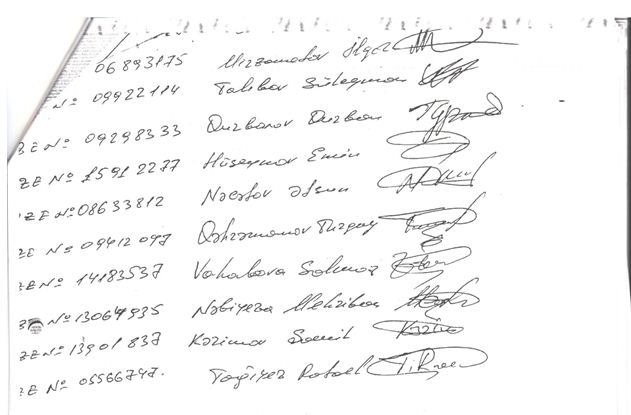 06893175 Mirzəmətov İlqar
№ 09922114 Talıbov Süleyman
ZE № 09298333 Qurbanov Qurban
ZE № 15912277 Hüseynov Emin
ZE № 08633812
ZE № 09412097 Qəhrəmanov
ZE № 14183537 Vahabova
№ 13064935 Nəbiyeva Mehriban
ZE № 13901837 Kərimov Samil
ZE № 05566747. Tağıyev Rafael